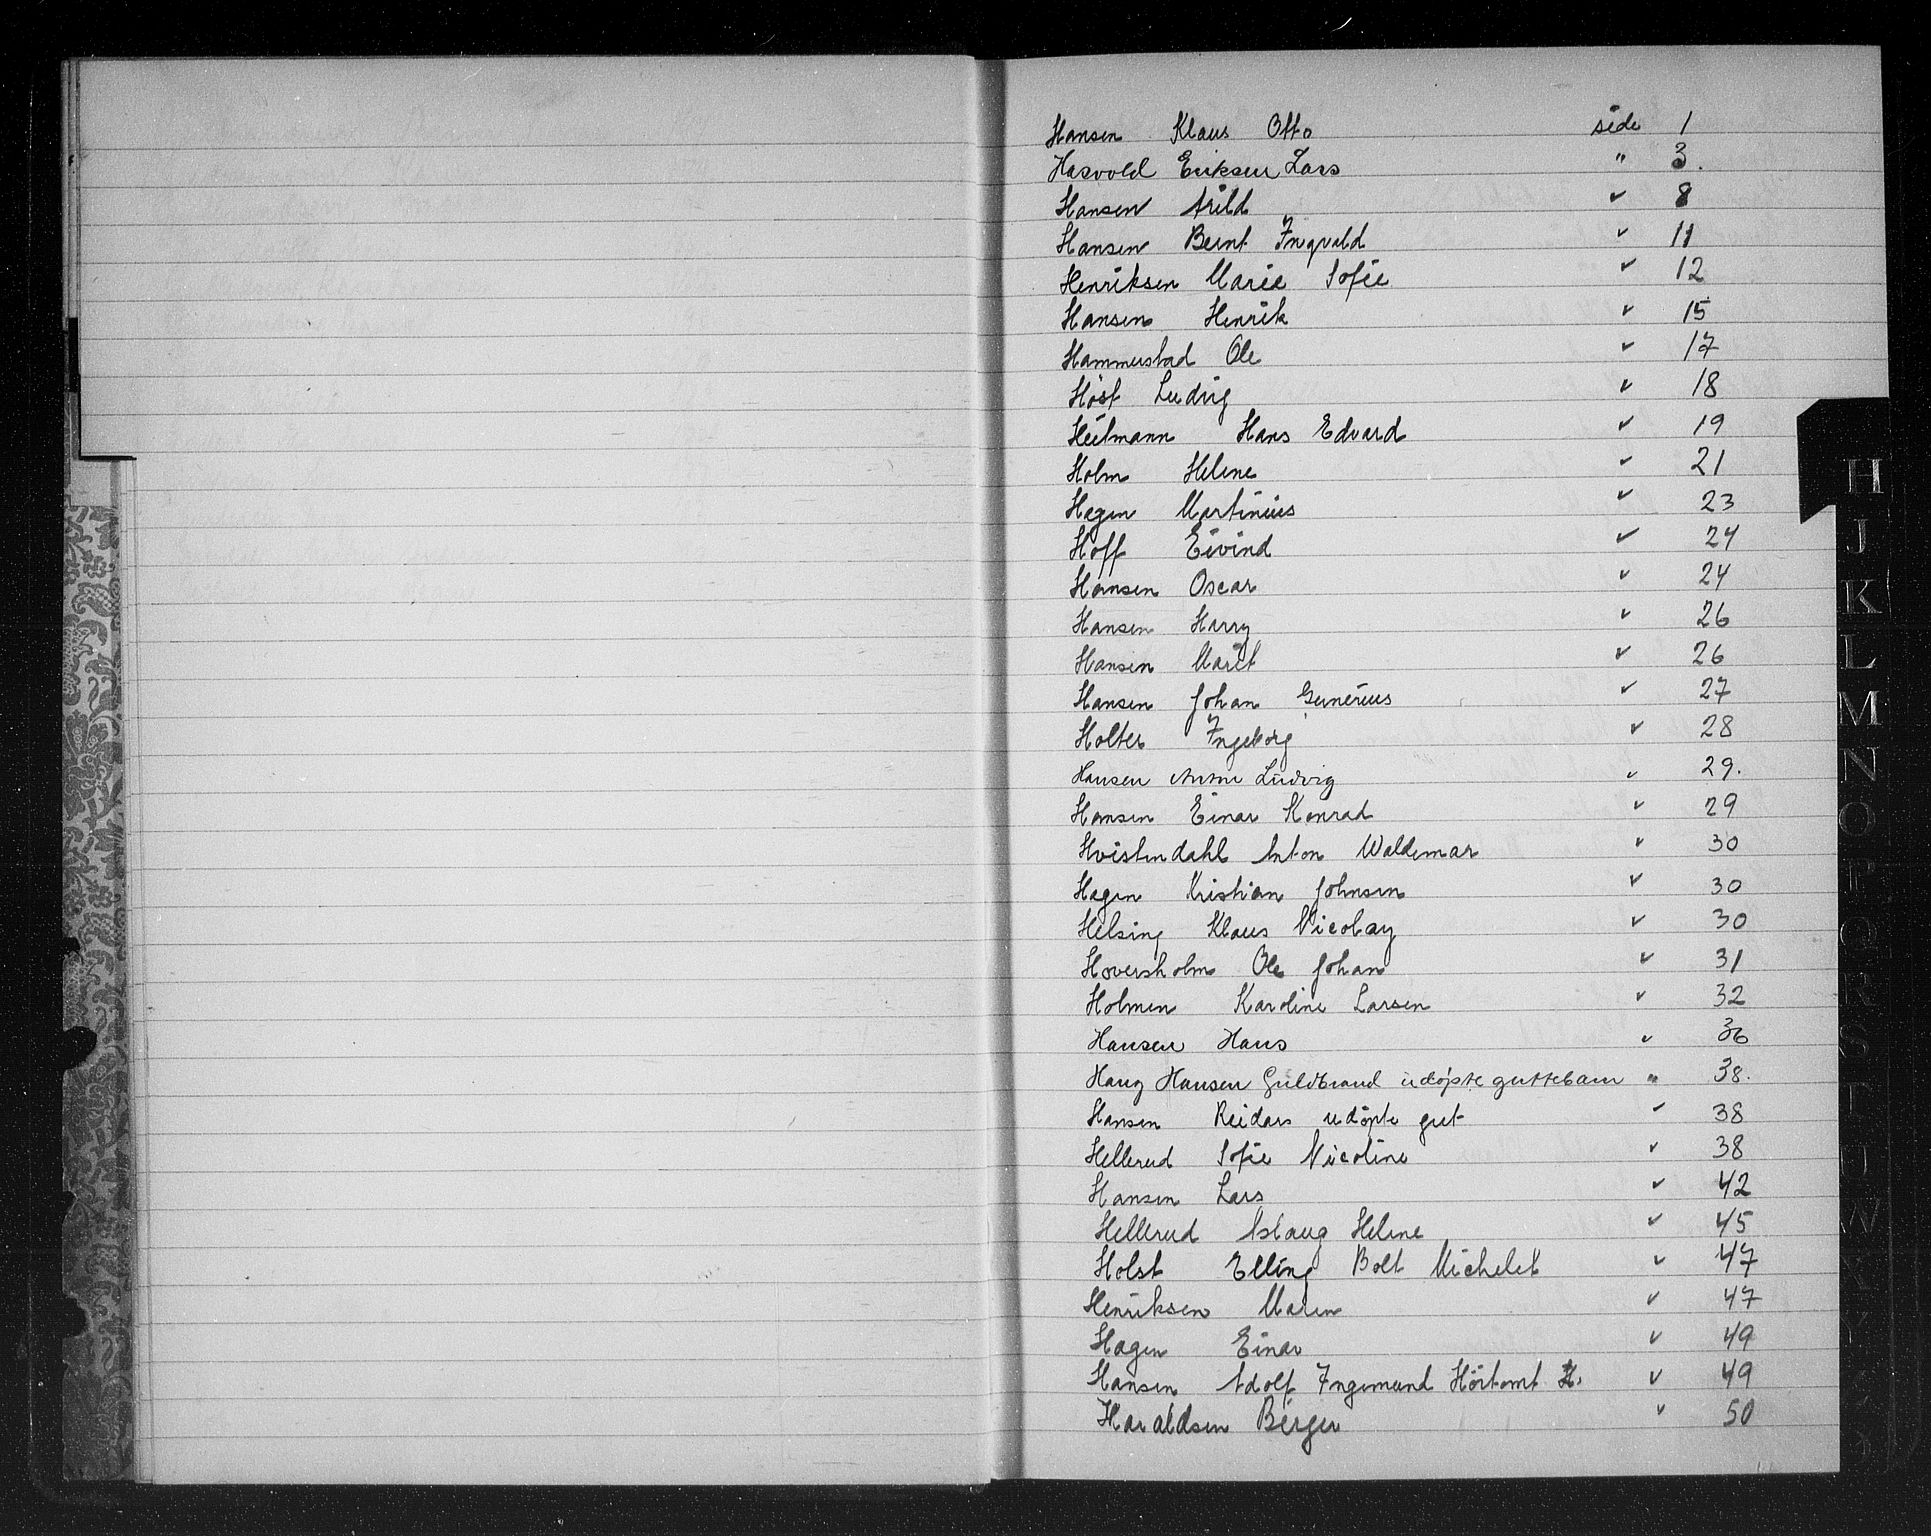 Hansen Klaus Otto side 1
Hasvold Eriksen Lars " 3.
Hansen Arild " 8
Hansen Bernt Ingvald " 11
Henriksen Marie Sofie " 12
Hansen Henrik " 15
Hammerstad Ole " 17
Höst Ludvig " 18
Heilmann Hans Edvard " 19
Holm Helene " 21
Hagen Martinius " 23
Hoff Eivind " 24
Hansen Oscar " 24
Hansen Harry " 26
Hansen Marit " 26
Hansen Johan Gunerius " 27
Holter Ingeborg " 28
Hansen Anton Ludvig " 29.
Hansen Einar Konrad " 29
Hvistendahl Anton Waldemar " 30
Hagen Kristian Johnsen " 30
Helsing Klaus Nicolay " 30
Hoversholm Ole Johan " 31
Holmen Karoline Larsen " 32
Hansen Hans " 36
Haug Hansen Guldbrand udøpte guttebarn " 38.
Hansen Reidars udöpte gut " 38
Hellerud Sofie Nicoline " 38
Hansen Lars " 42
Hellerud Aslaug Helene " 45
Holst Elling Bolt Michelet " 47
Henriksen Maren " 47
Hagen Einar " 49
Hansen Adolf Ingemund Hörtomt H. " 49
Haraldsen Berger " 50
H
J
K
L
M
N
O
P
Q
R
S
T
U
W